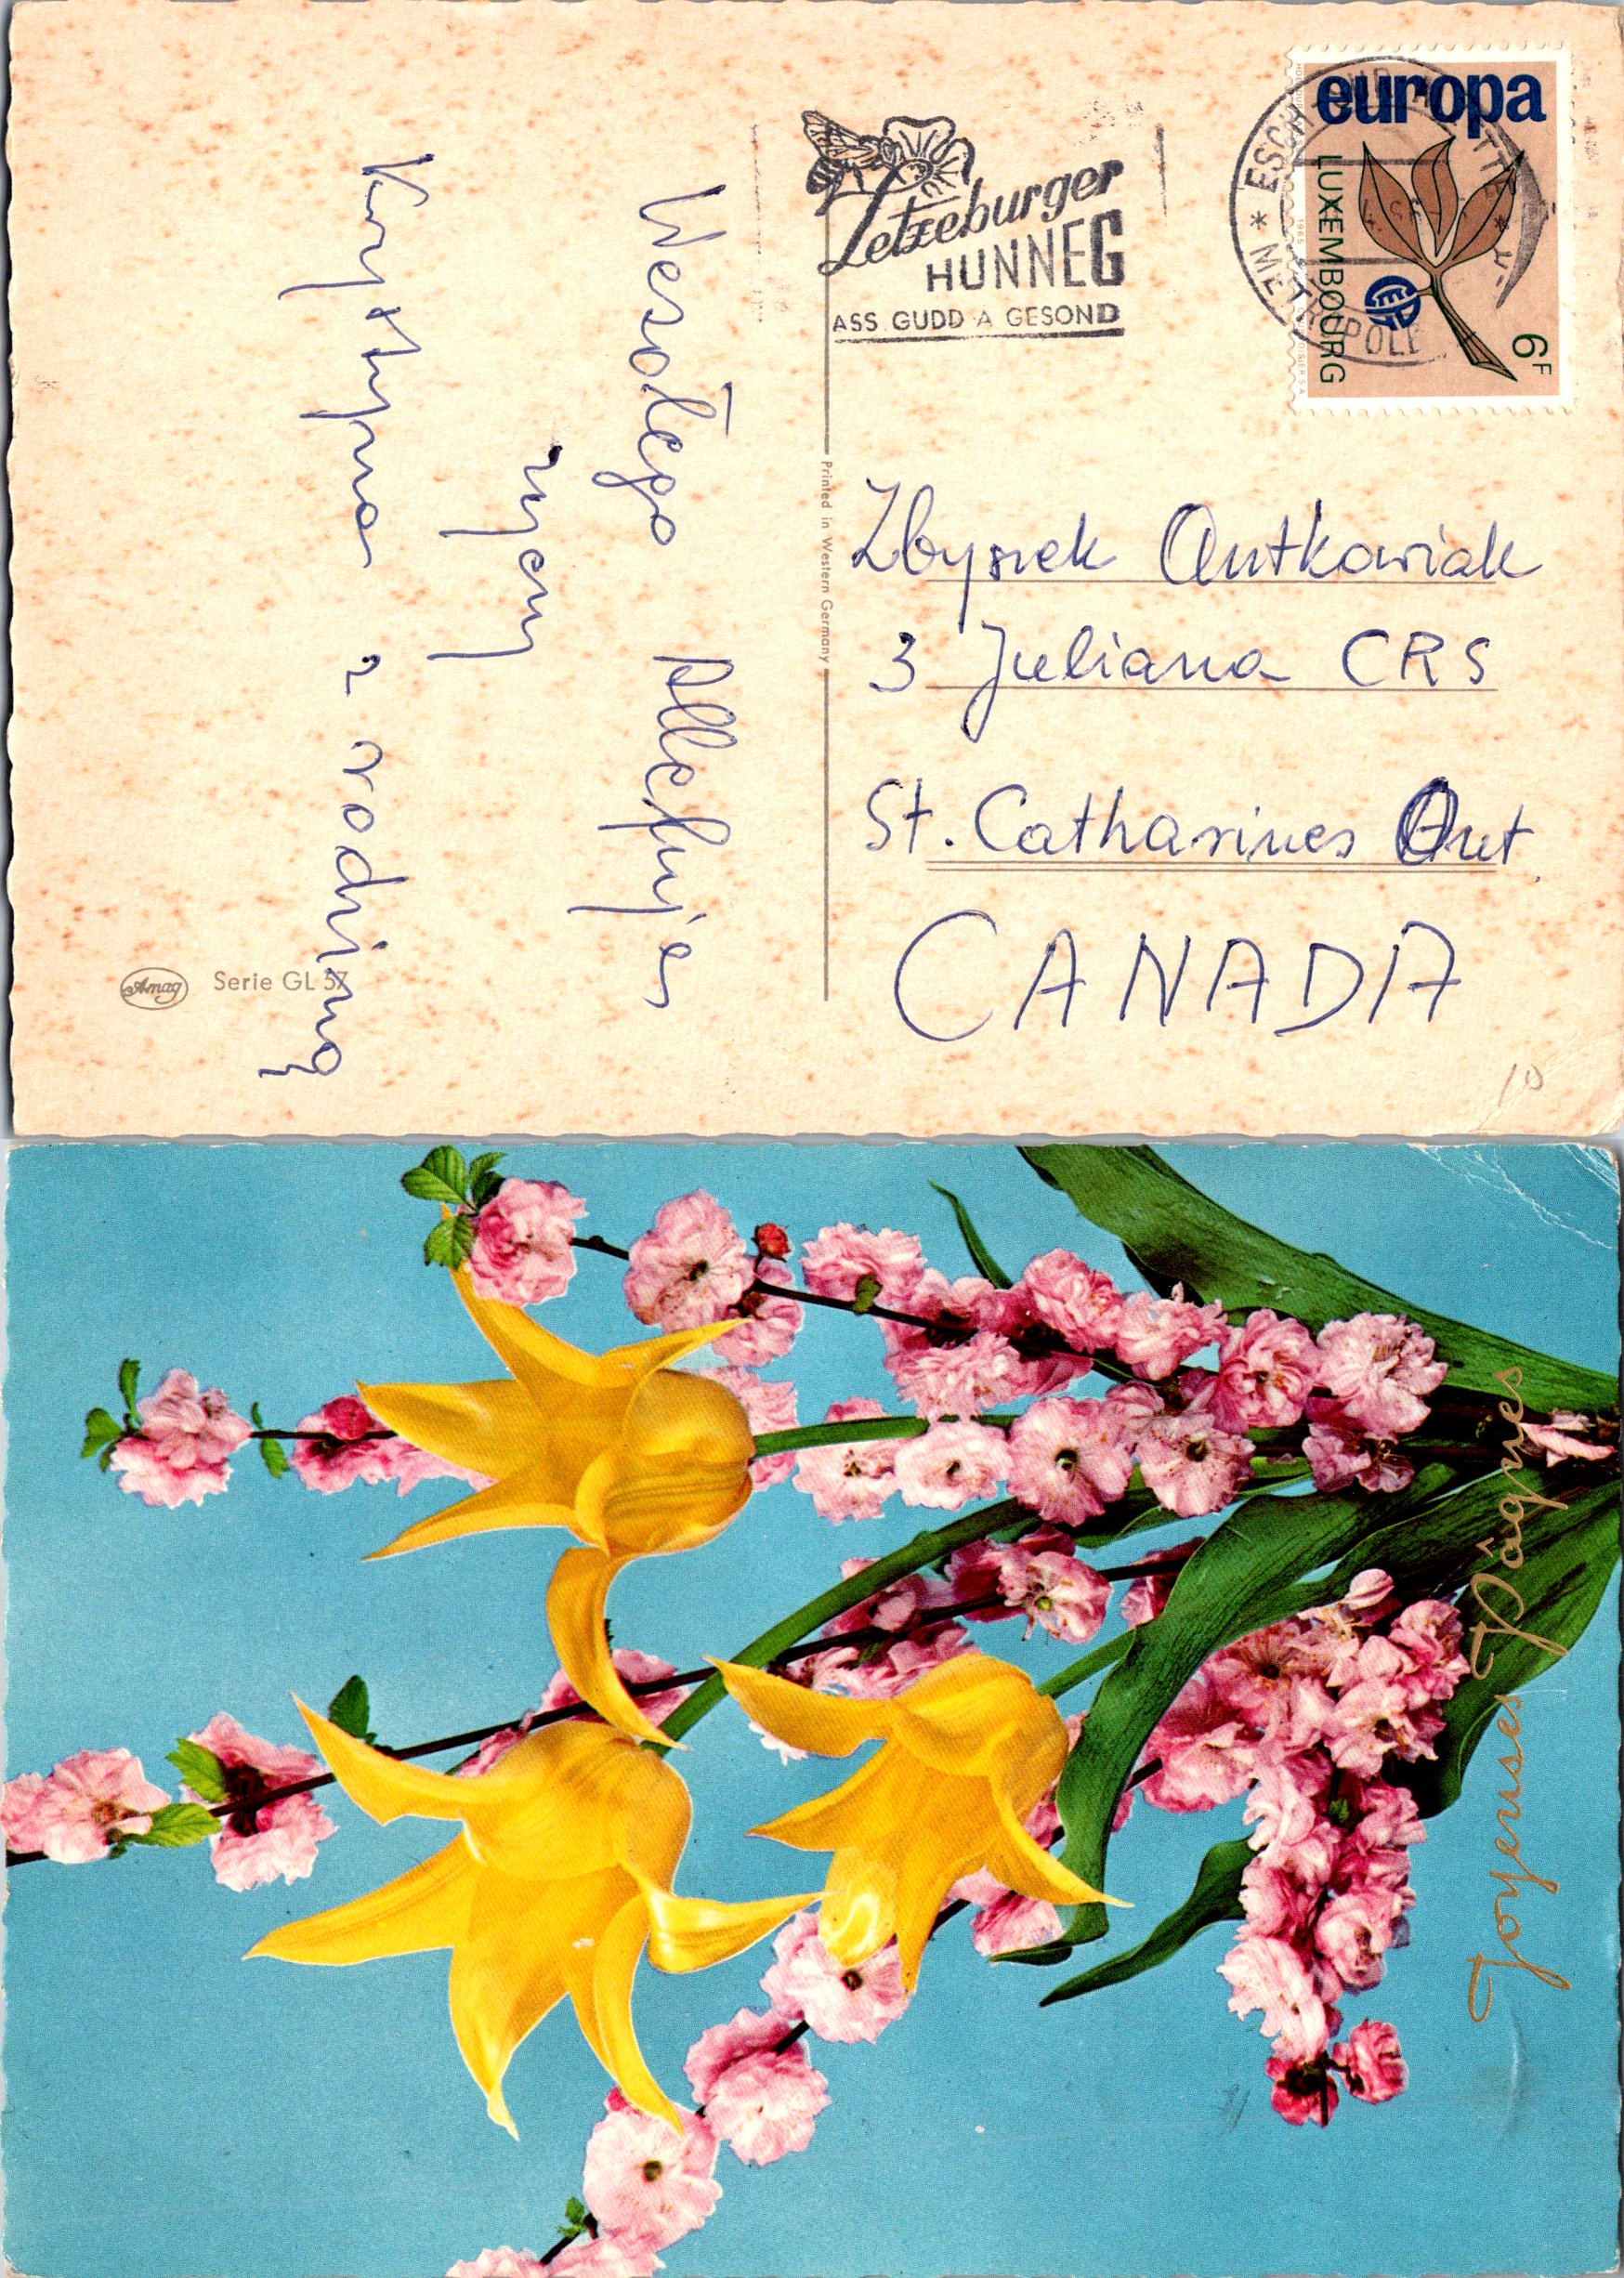 Letzeburger
HUNNEG
ASS GUDD A GESOND
europa
LUXEMBOURG
6F
CEPT
1965
* METROPOLE
Wesołego Allelluja
życzy
Krystyna z rodziną
Printed in Western Germany
Zbyszek Antkowiak
3 Juliana CRS
St. Catharines Ont.
CANADA
Amag
Serie GL 57
10
Joyeuses Pâques